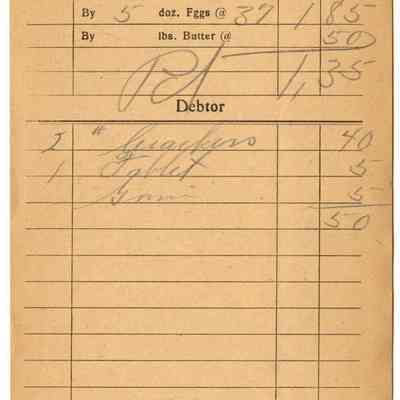 By 5 doz. Eggs @ 37 1 85
By lbs. Butter @ 50
Pd 1,35
Debtor
2 # Crackers 40
1 Tablet 5
5
50